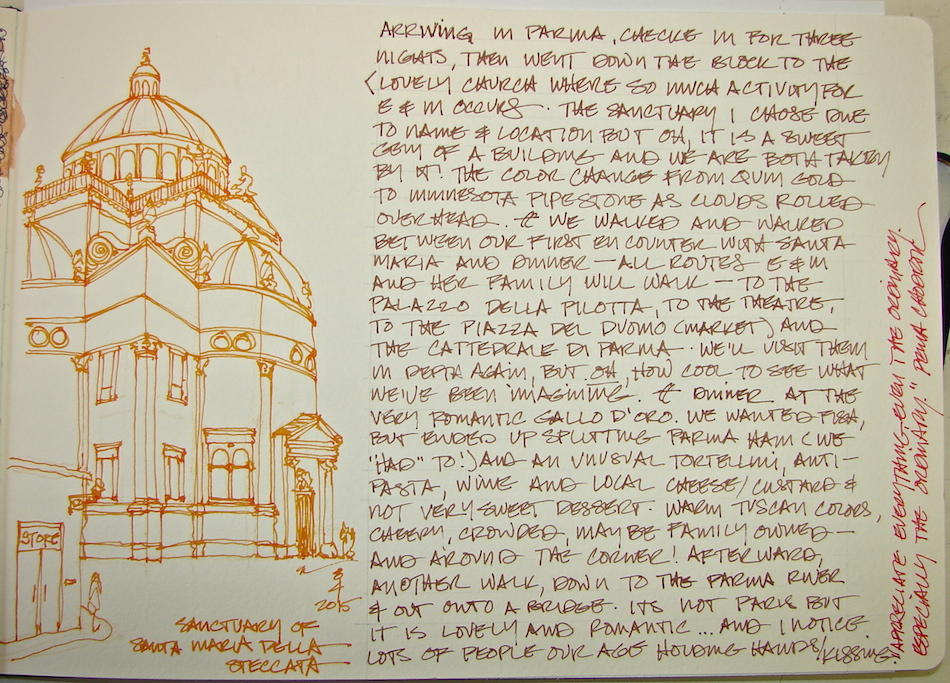 STORE
&
2015
SANCTUARY OF
SANTA MARIA DELLA
STECCATA
ARRIVING IN PARMA, CHECKE IN FOR THREE
NIGHTS, THEN WENT DOWN THE BLOCK TO THE
LOVELY CHURCH WHERE SO MUCH ACTIVITY FOR
E & M OCCURS. THE SANCTUARY I CHOSE DUE
TO NAME & LOCATION BUT OH, IT IS A SWEET
GEM OF A BUILDING AND WE ARE BOTH TAKEN
BY IT! THE COLOR CHANGE FROM QUIN GOLD
TO MINNESOTA PIPESTONE AS CLOUDS ROLLED
OVERHEAD. WE WALKED AND WALKED
BETWEEN OUR FIRST ENCOUNTER WITH SANTA
MARIA AND DINNER — ALL ROUTES E & M
AND HER FAMILY WILL WALK — TO THE
PALAZZO DELLA PILOTTA, TO THE THEATRE,
TO THE PIAZZA DEL DUOMO (MARKET) AND
THE CATTEDRALE DI PARMA. WE'LL VISIT THEM
IN DEPTH AGAIN, BUT OH, HOW COOL TO SEE WHAT
WE'VE BEEN IMAGINING. DINNER AT THE
VERY ROMANTIC GALLO D'ORO. WE WANTED FISH,
BUT ENDED UP SPLITTING PARMA HAM (WE
"HAD" TO!) AND AN UNUSUAL TORTELLINI, ANTI-
PASTA, WINE AND LOCAL CHEESE/CUSTARD &
NOT VERY SWEET DESSERT. WARM TUSCAN COLORS,
CHEERY, CROWDED, MAYBE FAMILY OWNED —
AND AROUND THE CORNER! AFTERWARD,
ANOTHER WALK, DOWN TO THE PARMA RIVER
& OUT ONTO A BRIDGE. ITS NOT PARIS BUT
IT IS LOVELY AND ROMANTIC ... AND I NOTICE
LOTS OF PEOPLE OUR AGE HOLDING HANDS/KISSING.
"APPRECIATE EVERYTHING, EVEN THE ORDINARY.
ESPECIALLY THE ORDINARY." PEMA CHODRON